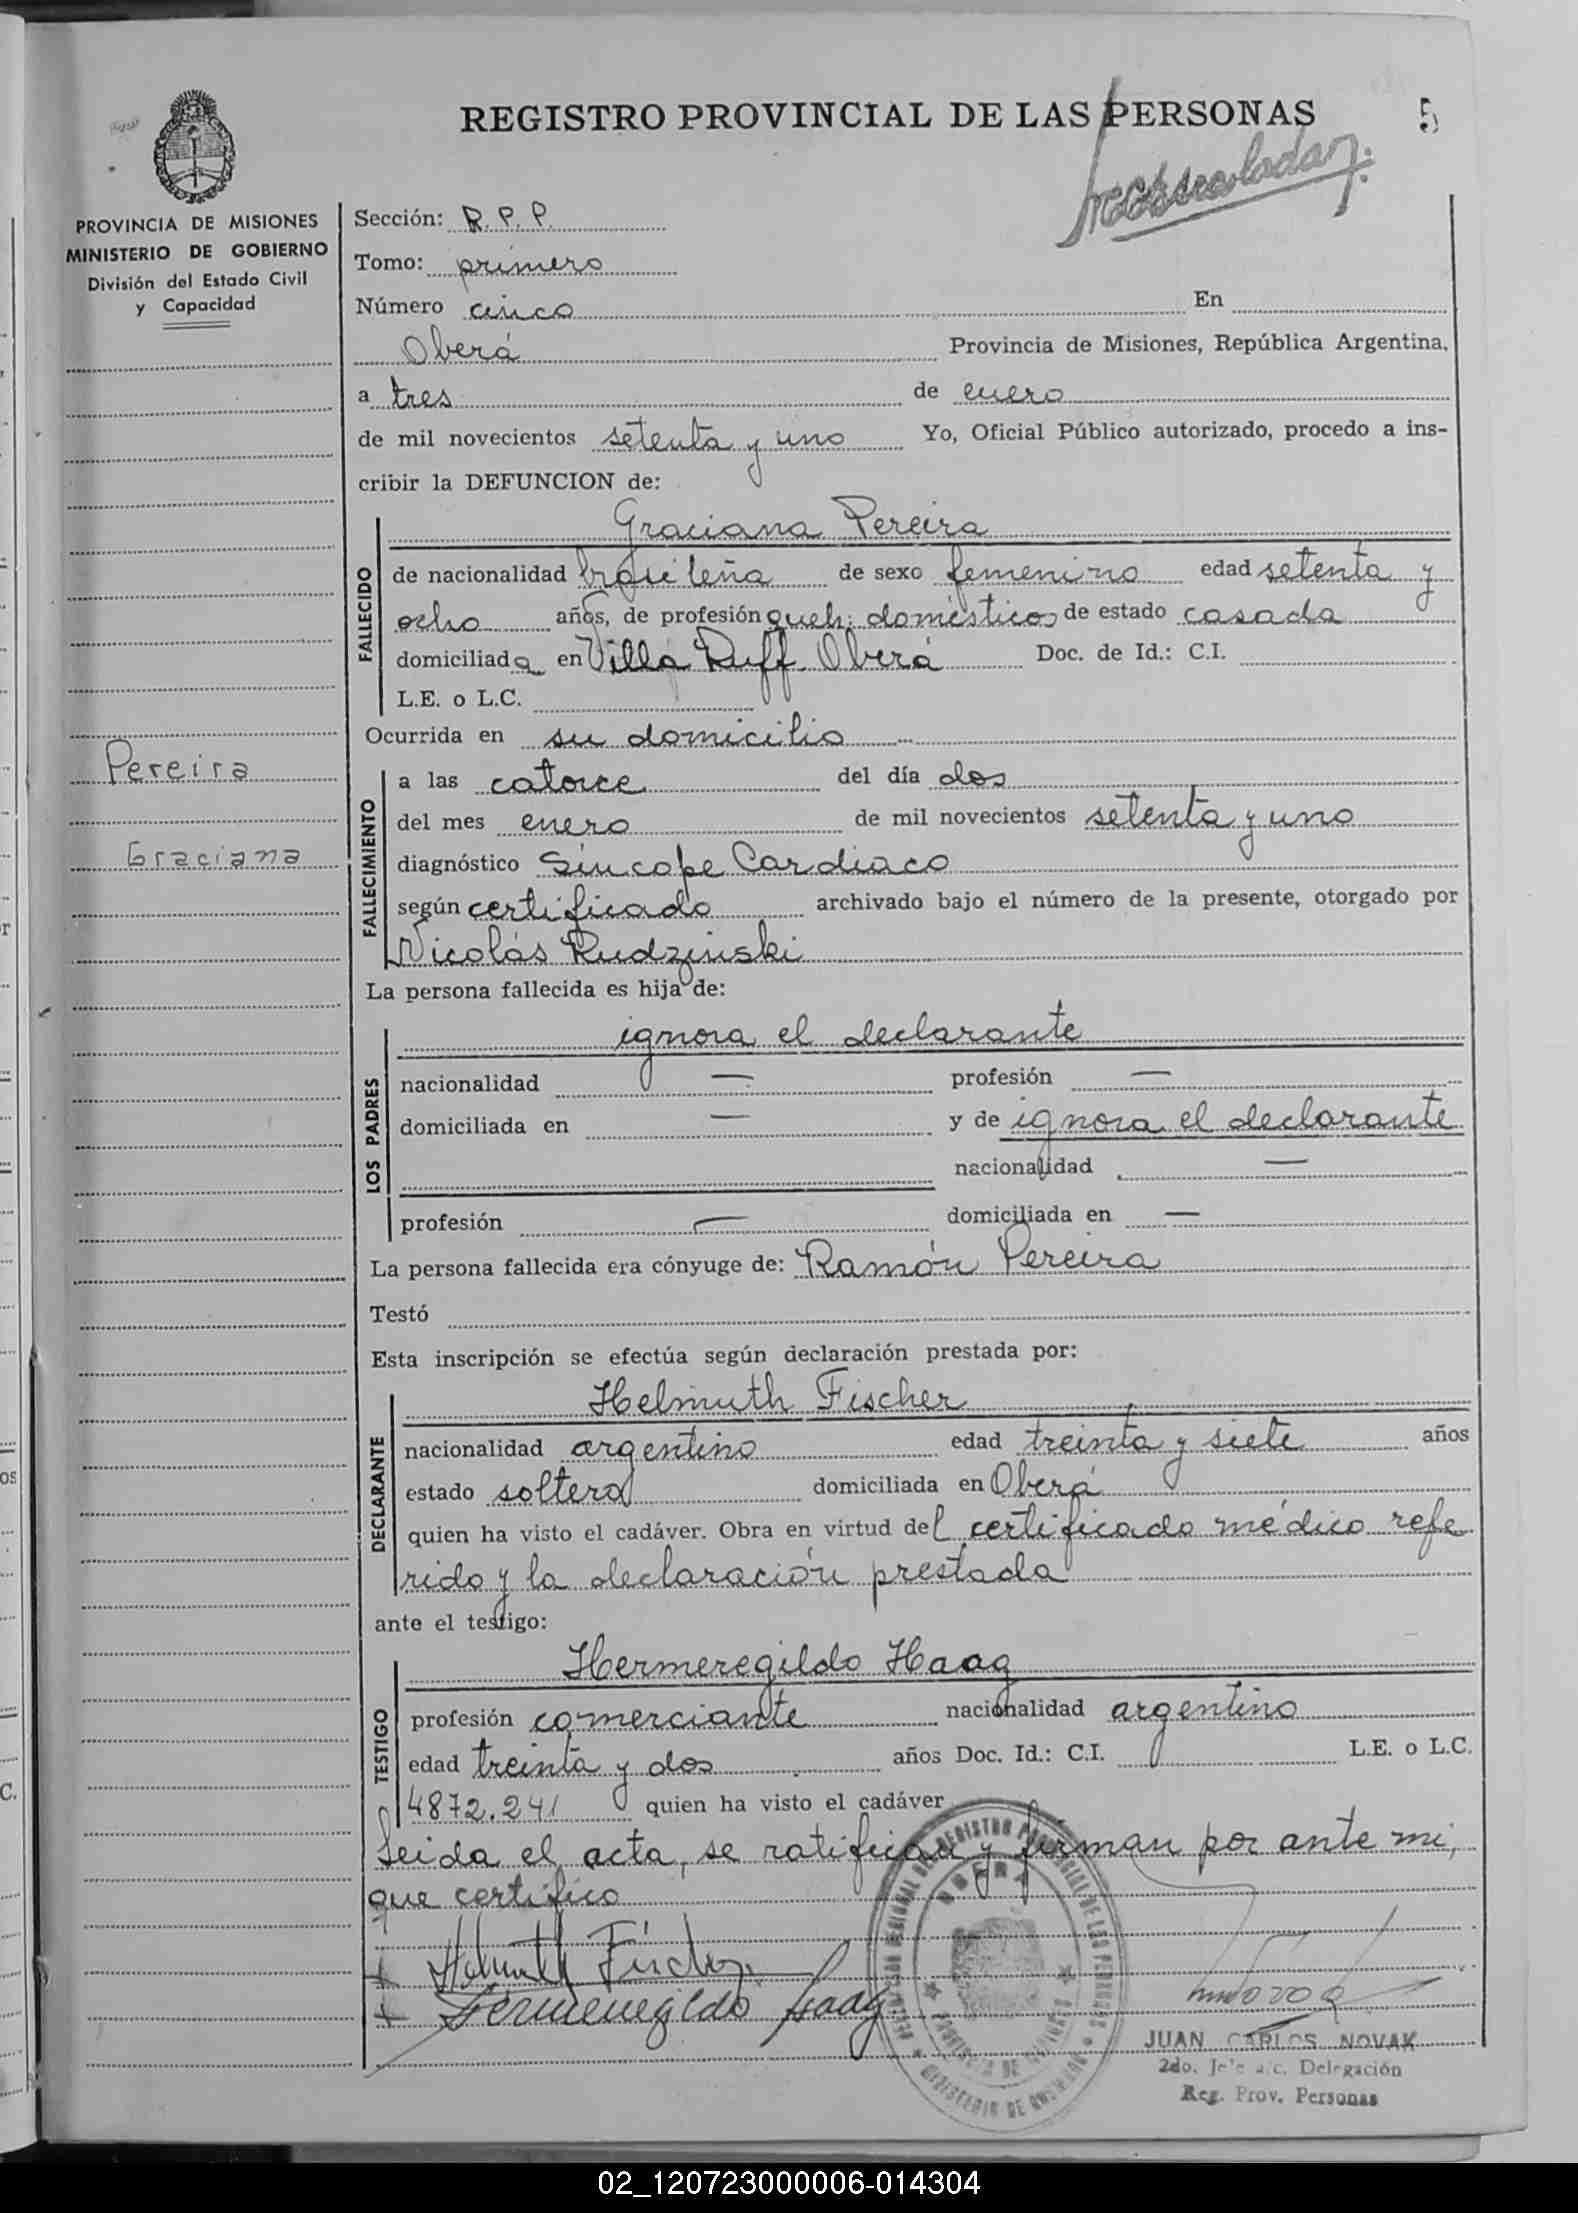 REGISTRO PROVINCIAL DE LAS PERSONAS
5
PROVINCIA DE MISIONES
MINISTERIO DE GOBIERNO
División del Estado Civil
y Capacidad
Pereira
Graciana
Sección: R.P.P.
Tomo: primero
Número cinco En
Oberá Provincia de Misiones, República Argentina,
a tres de enero
de mil novecientos setenta y uno Yo, Oficial Público autorizado, procedo a ins-
cribir la DEFUNCION de:
FALLECIDO
Graciana Pereira
de nacionalidad brasileña de sexo femenino edad setenta y
ocho años, de profesión queh. domésticos de estado casada
domiciliada en Villa Ruff Oberá Doc. de Id.: C.I.
L.E. o L.C.
Ocurrida en su domicilio
FALLECIMIENTO
a las catorce del día dos
del mes enero de mil novecientos setenta y uno
diagnóstico Síncope Cardiaco
según certificado archivado bajo el número de la presente, otorgado por
Nicolás Rudzinski
La persona fallecida es hija de:
LOS PADRES
ignora el declarante
nacionalidad — profesión —
domiciliada en — y de ignora el declarante
nacionalidad —
profesión — domiciliada en —
La persona fallecida era cónyuge de: Ramón Pereira
Testó
Esta inscripción se efectúa según declaración prestada por:
DECLARANTE
Helmuth Fischer
nacionalidad argentino edad treinta y siete años
estado soltero domiciliada en Oberá
quien ha visto el cadáver. Obra en virtud del certificado médico refe
rido y la declaración prestada
ante el testigo:
TESTIGO
Hermeregildo Haag
profesión comerciante nacionalidad argentino
edad treinta y dos años Doc. Id.: C.I. L.E. o L.C.
4872.241 quien ha visto el cadáver
Leida el acta, se ratifican y firman por ante mi,
que certifico
Helmuth Fischer
Hermenegildo Haag
JUAN CARLOS NOVAK
2do. Jefe a/c. Delegación
Reg. Prov. Personas
02_120723000006-014304